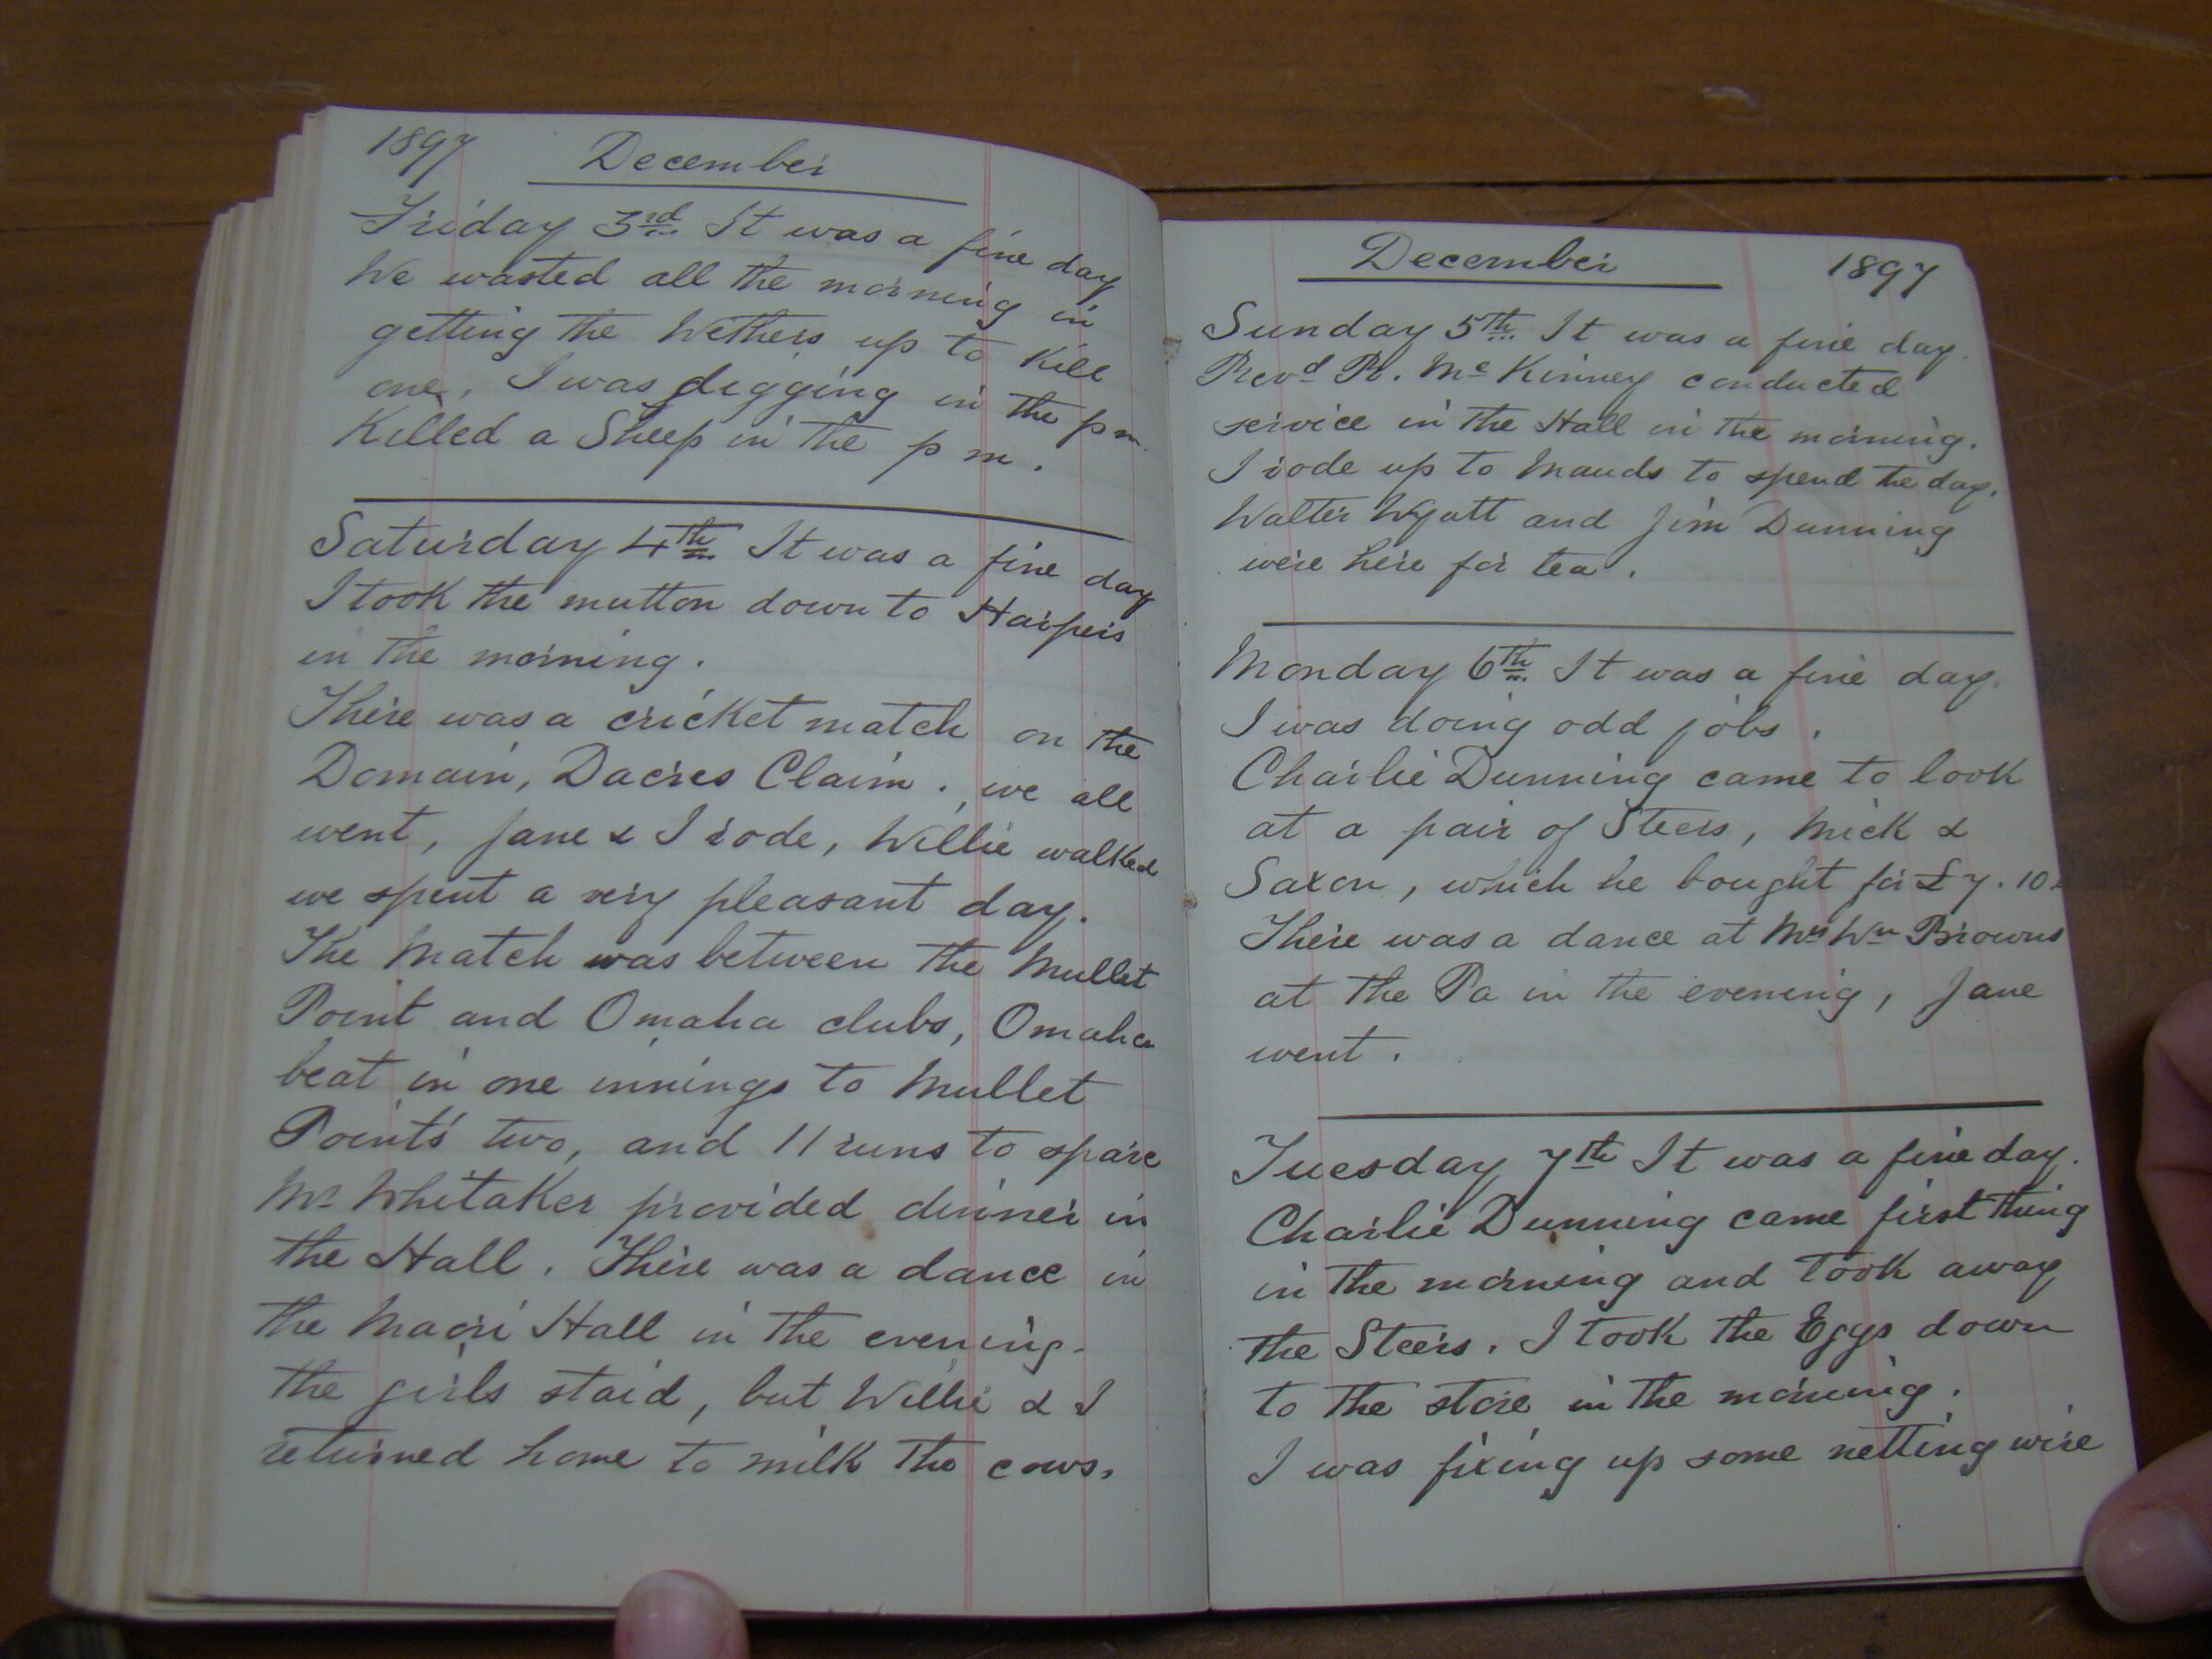 1897 December
Friday 3rd It was a fine day
We wasted all the morning in
getting the Wethers up to kill
one, I was digging in the p m.
Killed a Sheep in the p m.
Saturday 4th It was a fine day
I took the mutton down to Harpers
in the morning.
There was a cricket match on the
Domain, Dacres Claim. we all
went, Jane & I rode, Willie walked
we spent a very pleasant day.
The Match was between the Mullet
Point and Omaha clubs, Omaha
beat in one innings to Mullet
Point's two, and 11 runs to spare
Mr Whitaker provided dinner in
the Hall. There was a dance in
the Maori Hall in the evening.
the girls staid, but Willie & I
returned home to milk the cows.
December 1897
Sunday 5th It was a fine day.
Revd R. McKinney conducted
service in the Hall in the morning.
I rode up to Mauds to spend the day.
Walter Wyatt and Jim Dunning
were here for tea.
Monday 6th It was a fine day.
I was doing odd jobs.
Charlie Dunning came to look
at a pair of Steers, Mick &
Saxon, which he bought for £7.10.
There was a dance at Mrs Wm Browns
at the Pa in the evening, Jane
went.
Tuesday 7th It was a fine day.
Charlie Dunning came first thing
in the morning and took away
the Steers. I took the Eggs down
to the store in the morning.
I was fixing up some netting wire